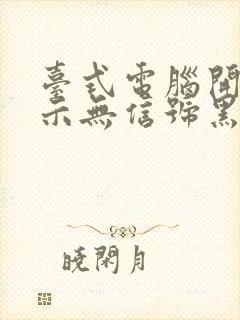 臺式電腦開
示無信號黑
曉閑月